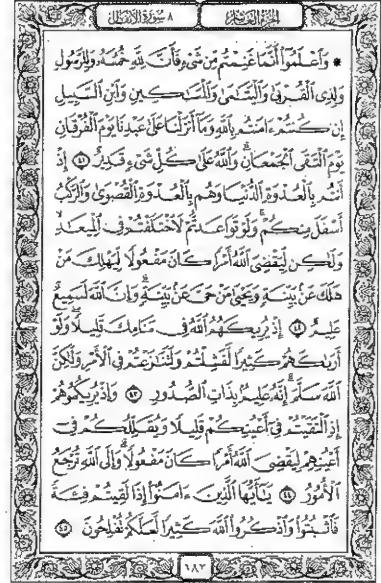 الجزء العاشر
٨ سورة الأنفال
* وَٱعْلَمُوٓا۟ أَنَّمَا غَنِمْتُم مِّن شَىْءٍ فَأَنَّ لِلَّهِ خُمُسَهُۥ وَلِلرَّسُولِ
وَلِذِى ٱلْقُرْبَىٰ وَٱلْيَتَـٰمَىٰ وَٱلْمَسَـٰكِينِ وَٱبْنِ ٱلسَّبِيلِ
إِن كُنتُمْ ءَامَنتُم بِٱللَّهِ وَمَآ أَنزَلْنَا عَلَىٰ عَبْدِنَا يَوْمَ ٱلْفُرْقَانِ
يَوْمَ ٱلْتَقَى ٱلْجَمْعَانِ ۗ وَٱللَّهُ عَلَىٰ كُلِّ شَىْءٍ قَدِيرٌ ٤١ إِذْ
أَنتُم بِٱلْعُدْوَةِ ٱلدُّنْيَا وَهُم بِٱلْعُدْوَةِ ٱلْقُصْوَىٰ وَٱلرَّكْبُ
أَسْفَلَ مِنكُمْ ۚ وَلَوْ تَوَاعَدتُّمْ لَٱخْتَلَفْتُمْ فِى ٱلْمِيعَـٰدِ ۙ
وَلَـٰكِن لِّيَقْضِىَ ٱللَّهُ أَمْرًا كَانَ مَفْعُولًا لِّيَهْلِكَ مَنْ
هَلَكَ عَنۢ بَيِّنَةٍ وَيَحْيَىٰ مَنْ حَىَّ عَنۢ بَيِّنَةٍ ۗ وَإِنَّ ٱللَّهَ لَسَمِيعٌ
عَلِيمٌ ٤٢ إِذْ يُرِيكَهُمُ ٱللَّهُ فِى مَنَامِكَ قَلِيلًا ۖ وَلَوْ
أَرَىٰكَهُمْ كَثِيرًا لَّفَشِلْتُمْ وَلَتَنَـٰزَعْتُمْ فِى ٱلْأَمْرِ وَلَـٰكِنَّ
ٱللَّهَ سَلَّمَ ۗ إِنَّهُۥ عَلِيمٌۢ بِذَاتِ ٱلصُّدُورِ ٤٣ وَإِذْ يُرِيكُمُوهُمْ
إِذِ ٱلْتَقَيْتُمْ فِىٓ أَعْيُنِكُمْ قَلِيلًا وَيُقَلِّلُكُمْ فِىٓ
أَعْيُنِهِمْ لِيَقْضِىَ ٱللَّهُ أَمْرًا كَانَ مَفْعُولًا ۗ وَإِلَى ٱللَّهِ تُرْجَعُ
ٱلْأُمُورُ ٤٤ يَـٰٓأَيُّهَا ٱلَّذِينَ ءَامَنُوٓا۟ إِذَا لَقِيتُمْ فِئَةً
فَٱثْبُتُوا۟ وَٱذْكُرُوا۟ ٱللَّهَ كَثِيرًا لَّعَلَّكُمْ تُفْلِحُونَ ٤٥
١٨٢